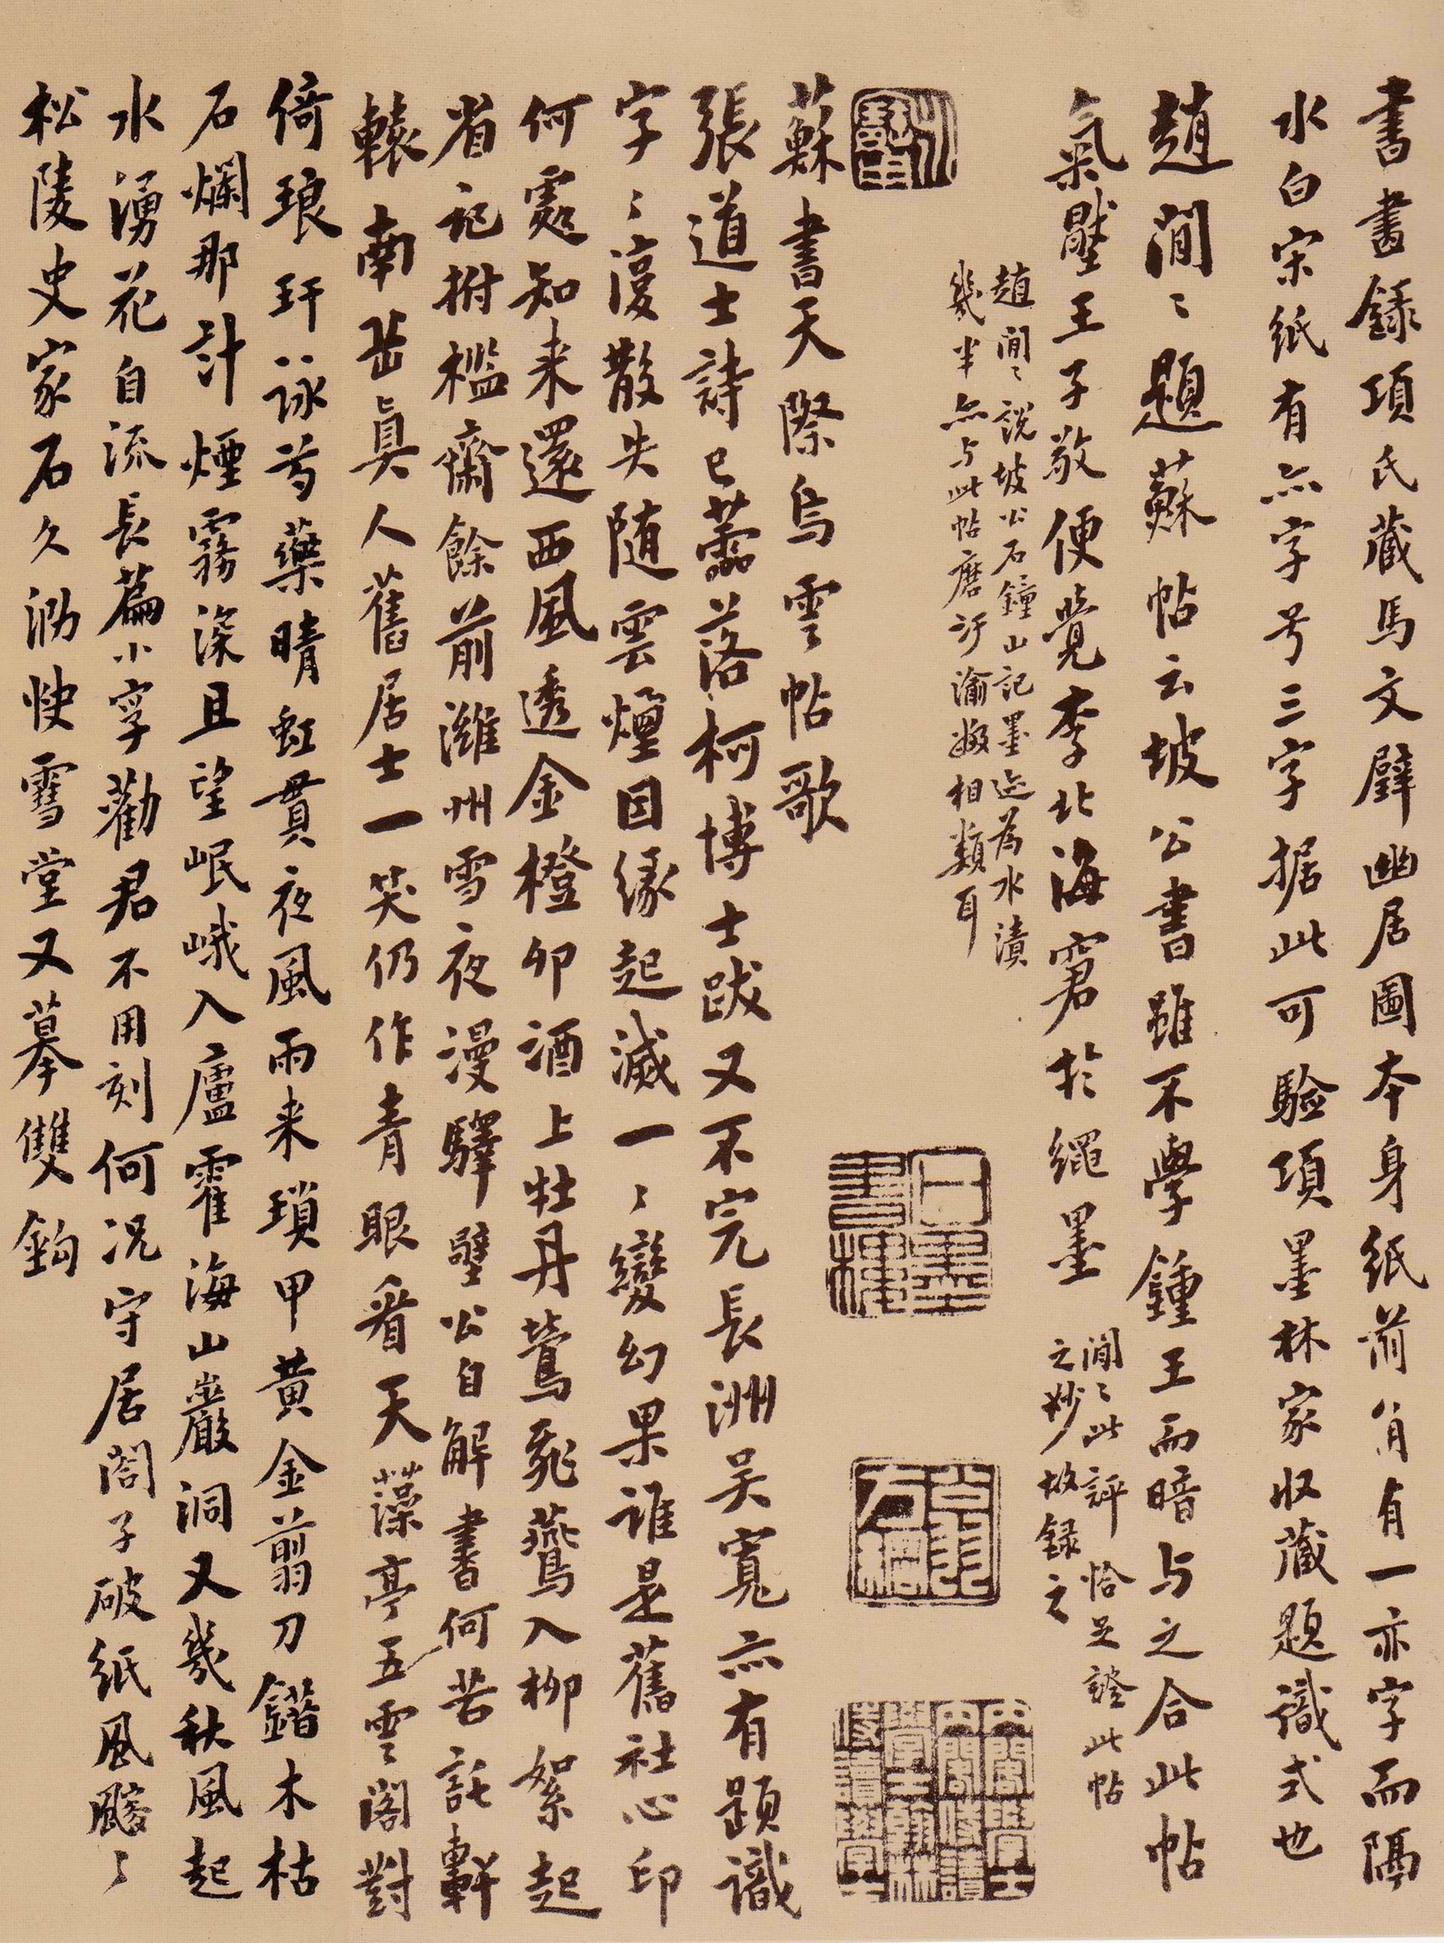 書畫錄項氏藏馬文璧幽居圖本身紙前角有一亦字而隔
水白宋紙有亦字号三字据此可驗項墨林家收藏題識式也
趙閒ミ題蘇帖云坡公書雖不學鍾王而暗与之合此帖
氣壓王子敬便覺李北海窘於繩墨
閒ミ此評恰足證此帖
之妙故錄之
趙閒ミ說坡公石鐘山記墨迹為水漬
幾半亦与此帖磨汙瀹皴相類耳
蘇書天際烏雲帖歌
張道士詩已蠹落柯博士跋又不完長洲吳寬亦有題識
字ミ復散失隨雲煙因緣起滅一ミ變幻果誰是舊社心印
何處知来還西風透金橙卯酒上牡丹鶯飛燕入柳絮起
省記拊檻齋餘前濰州雪夜漫驛壁公自解書何苦託軒
轅南岳真人舊居士一笑仍作青眼看天藻亭五雲閣對
倚琅玕詠芍藥晴虹貫夜風雨来瑣甲黄金剪刀鐕木枯
石爛那計煙霧深且望岷峨入廬霍海山巖洞又幾秋風起
水湧花自流長篇小字勸君不用刻何况守居閣子破紙風飂ミ
松陵史家石久泐快雪堂又摹雙鉤